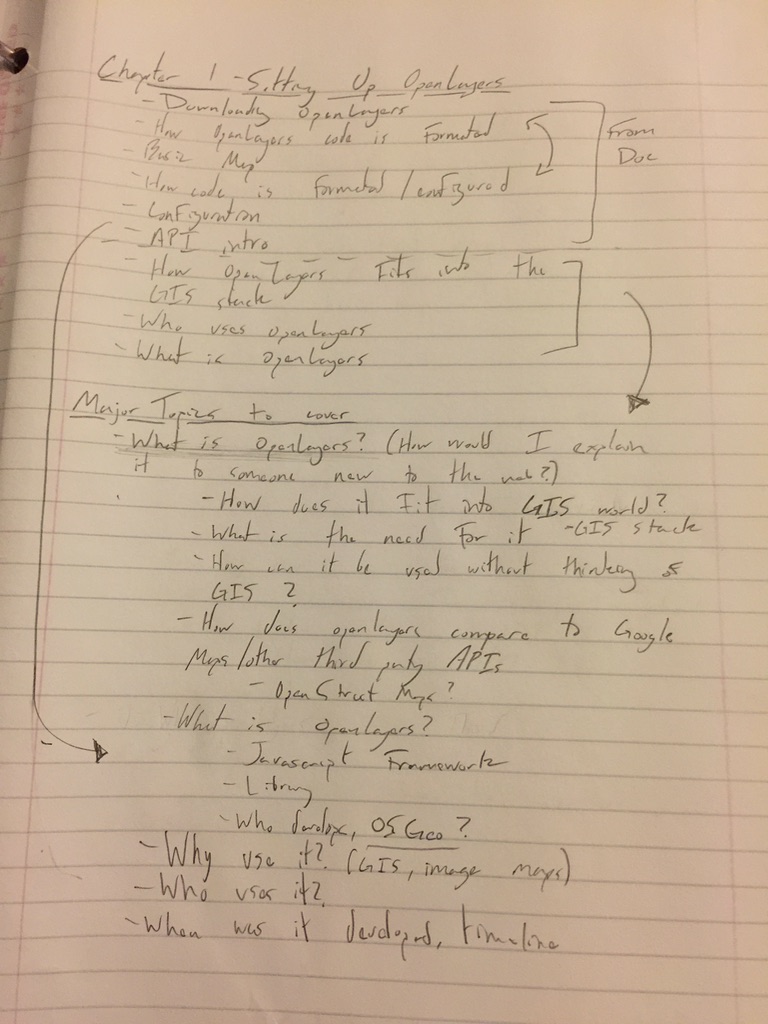 Chapter 1 - Setting Up OpenLayers
- Downloading OpenLayers
- How OpenLayers code is Formatted
- Basic Map
- How code is formatted / configured
- Configuration
- API intro
From
Doc
- How OpenLayers Fits into the
GIS stack
- Who uses OpenLayers
- What is OpenLayers
Major Topics to cover
- What is OpenLayers? (How would I explain
it to someone new to the web?)
- How does it Fit into GIS world?
- What is the need For it - GIS stack
- How can it be used without thinking of
GIS?
- How does openlayers compare to Google
Maps/other third party APIs
- OpenStreet Maps?
- What is OpenLayers?
- Javascript Framework
- Library
- Who develops, OSGeo?
- Why use it? (GIS, image maps)
- Who uses it?
- When was it developed, timeline